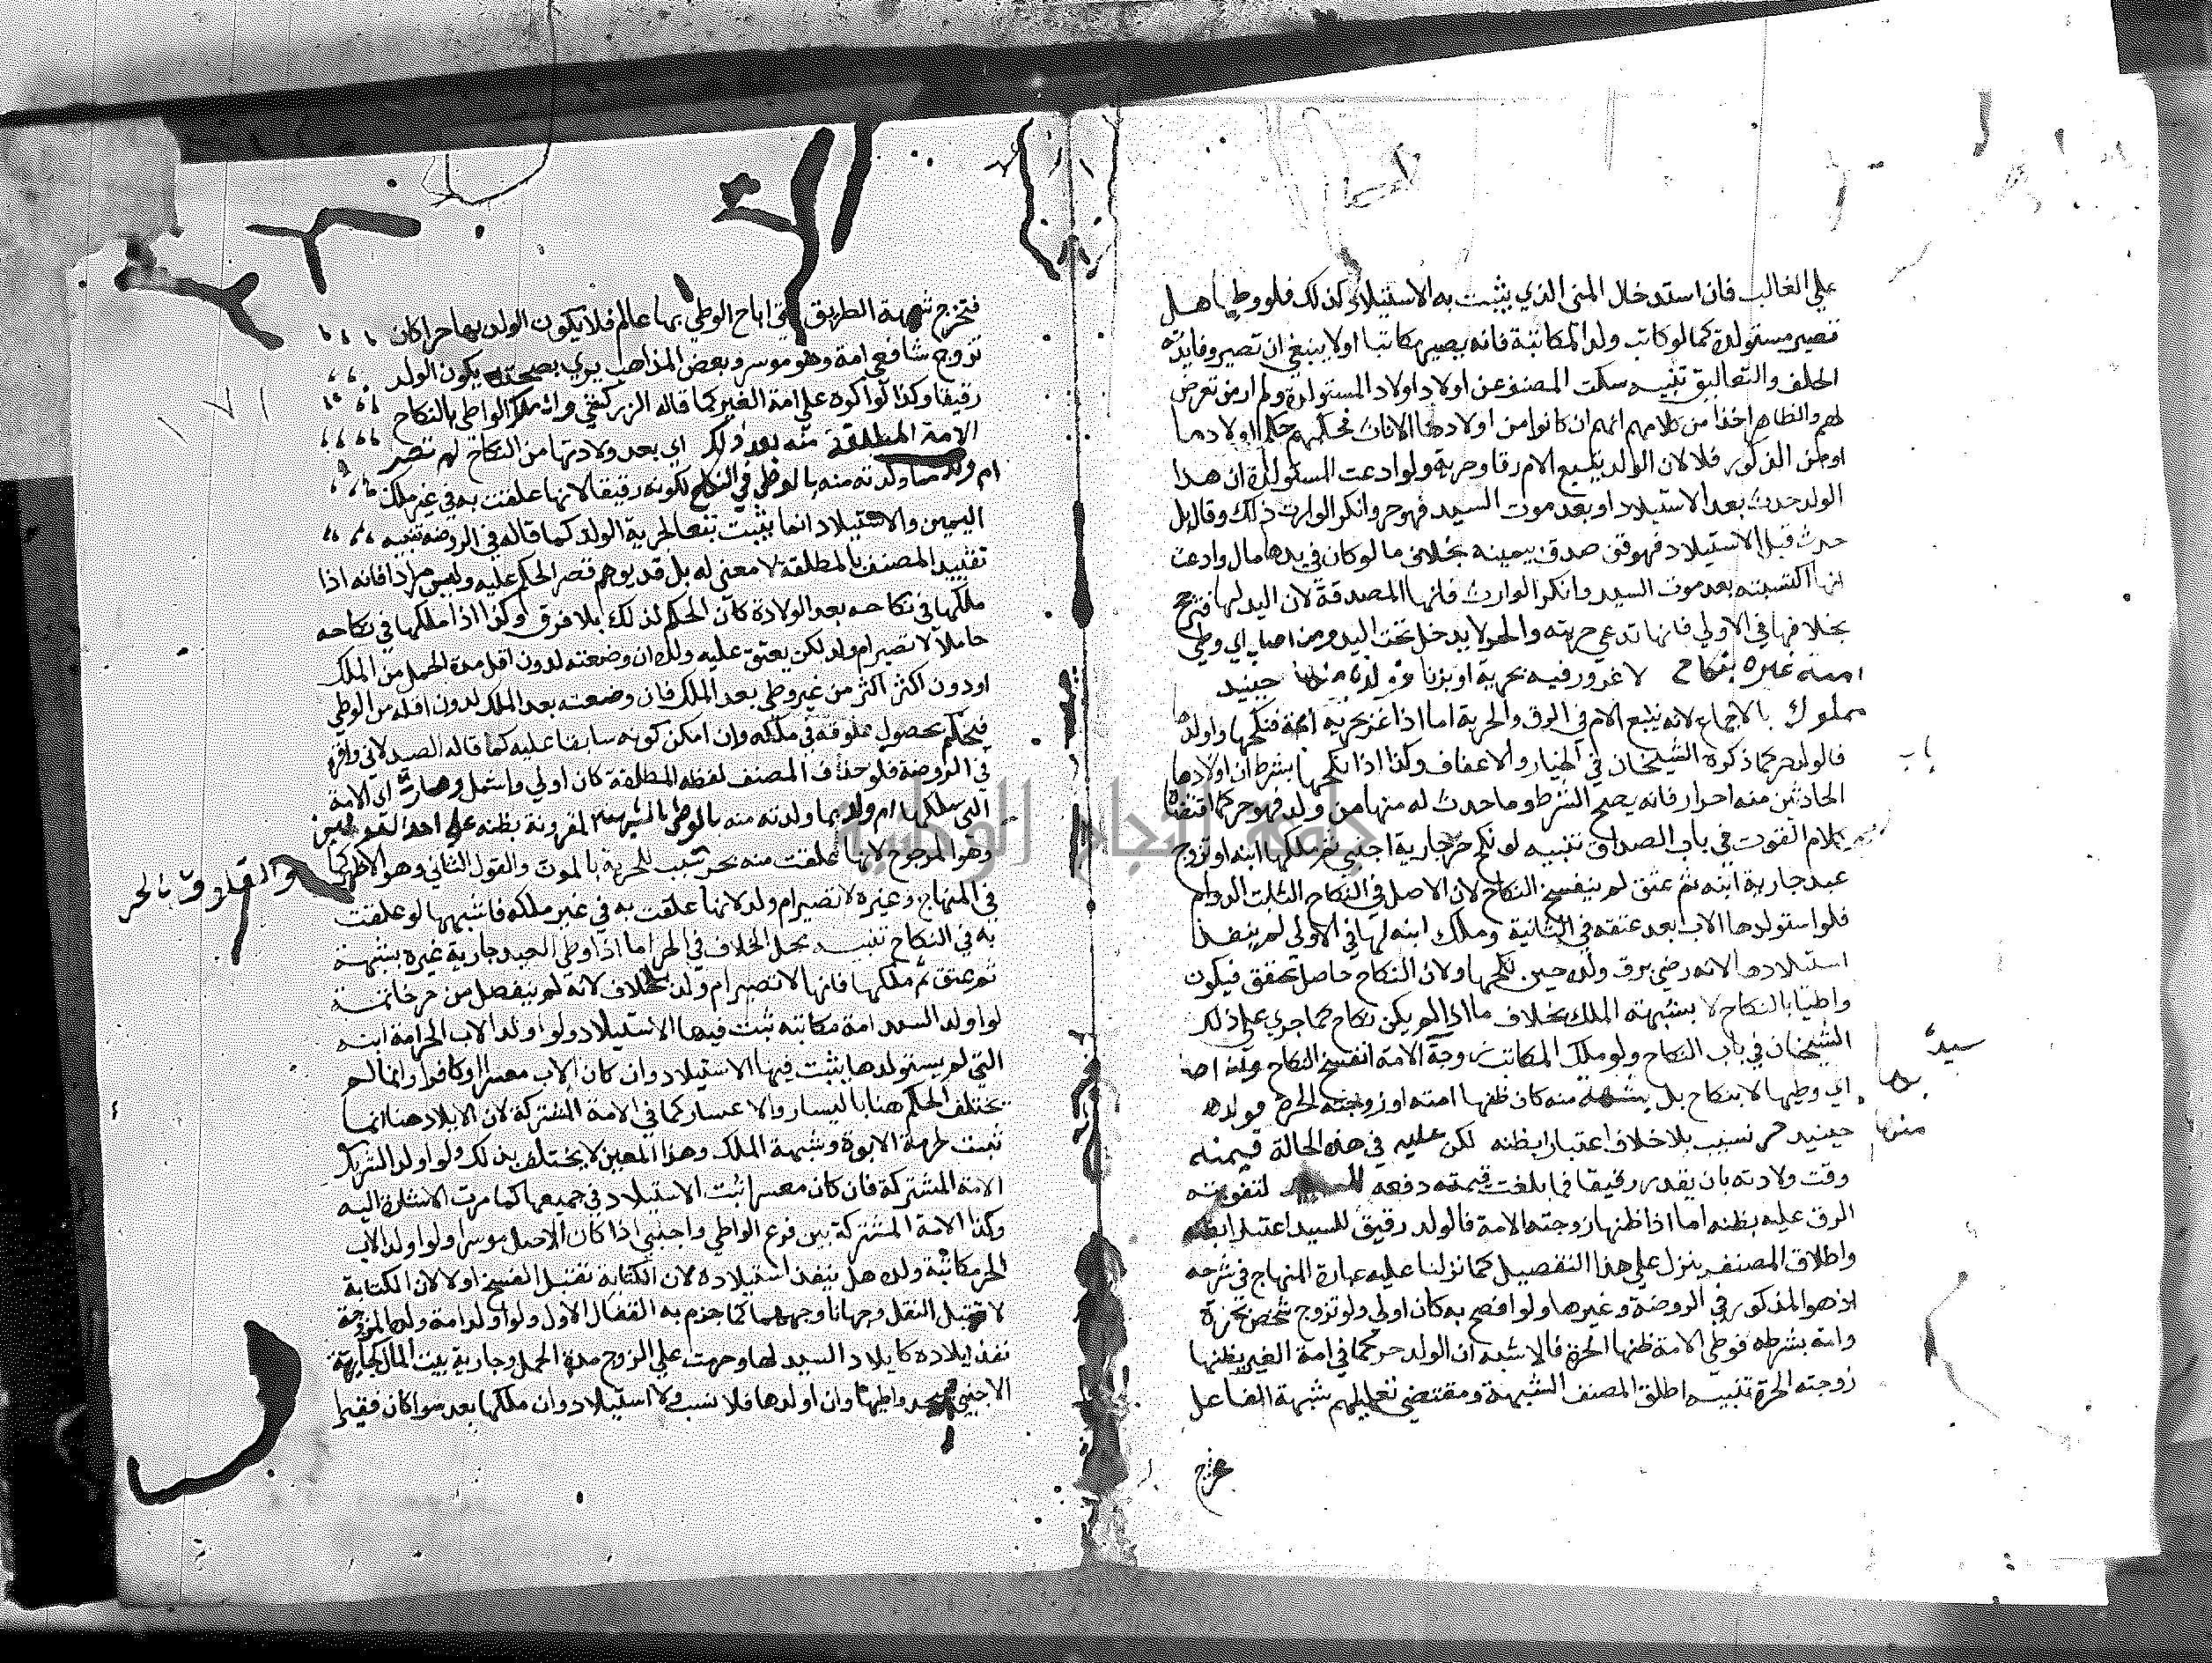 علي الغالب فان استدخال المني الذي يثبت به الاستيلاد كذلك فلو وطيها هل
تصير مستولدة كما لو كاتب ولد المكاتبة فانه يصير مكاتبا اولا ينبغي ان تصير وفايدته
الحلف والتعاليق تنبيه سكت المصنف عن اولاد اولاد المستولدة ولم ار من تعرض
لهم والظاهر اخذا من كلامهم انهم ان كانوا من اولادها الاناث فحكمهم حكم اولادها
او من الذكور فلا لان الولد يتبع الام رقا وحرية ولو ادعت المستولدة ان هذا
الولد حدث بعد الاستيلاد او بعد موت السيد فهو حر وانكر الوارث ذلك وقال بل
حدث قبل الاستيلاد فهو قن صدق بيمينه بخلاف ما لو كان في يدها مال وادعت
انها اكتسبته بعد موت السيد وانكر الوارث فانها المصدقة لان اليد لها فترجح
بخلافها في الاولي فانها تدعي حريته والحر لا يدخل تحت اليد ومن اصاب اي وطي
امة غيره بنكاح لا غرور فيه بحرية او بزنا فولده منها حينيذ
مملوك بالاجماع لانه يتبع الام في الرق والحرية اما اذا غر بحرية امة فنكحها واولدها
فالولد حر كما ذكره الشيخان في الخيار والاعفاف وكذا اذا نكحها بشرط ان اولادها
الحادثين منه احرار فانه يصح الشرط وما حدث له منها من ولد فهو حر كما اقتضاه
كلام القوت في باب الصداق تنبيه لو نكح حر جارية اجنبي ثم ملكها ابنه او تزوج
عبد جارية ابنه ثم عتق لم ينفسخ النكاح لان الاصل في النكاح الثابت الدوام
فلو استولدها الاب بعد عتقه في الثانية وملك ابنه لها في الاولي لم ينفذ
استيلادها لانه رضي برق ولده حين نكحها ولان النكاح حاصل محقق فيكون
واطيا بالنكاح لا بشبهة الملك بخلاف ما اذا لم يكن نكاح كما جري علي ذلك
الشيخان في باب النكاح ولو ملك المكاتب زوجة الامة انفسخ النكاح وان اصا
بها
سيده
اي وطيها لا بنكاح بل بشبهة منه كان ظنها امته او زوجته الحرة فولده
منها
حينيذ حر نسيب بلا خلاف اعتبارا بظنه لكن عليه في هذه الحالة قيمته
وقت ولادته بان يقدر رقيقا فما بلغت قيمته دفعه للسيد لتفويته
الرق عليه بظنه اما اذا ظنها زوجته الامة فالولد رقيق للسيد اعتبارا بظنه
واطلاق المصنف ينزل علي هذا التفصيل كما نزلنا عليه عبارة المنهاج في شرحه
اذ هو المذكور في الروضة وغيرها ولو افصح به كان اولي ولو تزوج شخص بحرة
وامة بشرطه فوطي الامة ظنها الحرة فالاشبه ان الولد حر كما في امة الغير يظنها
زوجته الحرة تنبيه اطلق المصنف الشبهة ومقتضي تعليلهم شبهة الفاعل
فتخرج
فتخرج شبهة الطريق التي اباح الوطي بها عالم فلا يكون الولد بها حرا كان
تزوج شافعي امة وهو موسر وبعض المذاهب يري بصحته يكون الولد
رقيقا وكذا لو اكره علي امة الغير كما قاله الزركشي وان ملك الواطي بالنكاح
الامة المطلقة منه بعد ذلك اي بعد ولادتها من النكاح لم تصر
ام ولد بما ولدته منه بالوطي في النكاح لكونه رقيقا لانها علقت به في غير ملك
اليمين والاستيلاد انما يثبت تبعا لحرية الولد كما قاله في الروضة تنبيه
تقييد المصنف بالمطلقة لا معني له بل قد يوهم قصر الحكم عليه وليس مرادا فانه اذا
ملكها في نكاحه بعد الولادة كان الحكم لذلك بلا فرق وكذا اذا ملكها في نكاحه
حاملا لا تصير ام ولد لكن يعتق عليه ولده ان وضعته لدون اقل مدة الحمل من الملك
او دون اكثر اكثر من غير وطي بعد الملك فان وضعته بعد الملك لدون اقله من الوطي
فيحكم بحصول علوقه في ملكه وان امكن كونه سابقا عليه كما قاله الصيدلاني واقره
في الروضة فلو حذف المصنف لفظه المطلقة كان اولي واشمل وصارت اي الامة
التي ملكها ام ولد بما ولدته منه بالوطي بالشبهة المقرونة بظنه علي احد القولين
وهو المرجوح لانها علقت منه بحر سبب للحرية بالموت والقول الثاني وهو الاظهر كما
والعلوق بالحر
في المنهاج وغيره لا تصير ام ولد لانها علقت به في غير ملكه فاشبهها لو علقت
به في النكاح تنبيه محل الخلاف في الحر اما اذا وطي العبد جارية غيره بشبهة
ثم عتق ثم ملكها فانها لا تصير ام ولد بلا خلاف لانه لم ينفصل من حر خاتمة
لو اولد السيد امة مكاتبه ثبت فيها الاستيلاد ولو اولد الاب الحر امة ابنه
التي لم يستولدها يثبت فيها الاستيلاد وان كان الاب معسرا او كافرا وانما لم
يختلف الحكم هنا باليسار والاعسار كما في الامة المشتركة لان الايلاد هنا انما
ثبت لحرمة الابوة وشبهة الملك وهذا المعني لا يختلف بذلك ولو اولد الشريك
الامة المشتركة فان كان معسرا ثبت الاستيلاد في جميعها كما مرت الاشارة اليه
وكذا الامة المشتركة بين فرع الواطي واجنبي اذا كان الاصل موسرا ولو اولد الاب
الحر مكاتبة ولده هل ينفذ استيلاده لان الكتابة تقبل الفسخ اولا لان الكتابة
لا تقبل النقل وجهان اوجههما كما جزم به القفال الاول ولو اولد امة ولده المزوجة
نفذ ايلاده كايلاد السيد لها وحرمت علي الزوج مدة الحمل وجارية بيت المال كجارية
الاجنبي فيحد واطيها وان اولدها فلا نسب ولا استيلاد وان ملكها بعد سوا كان فقيرا